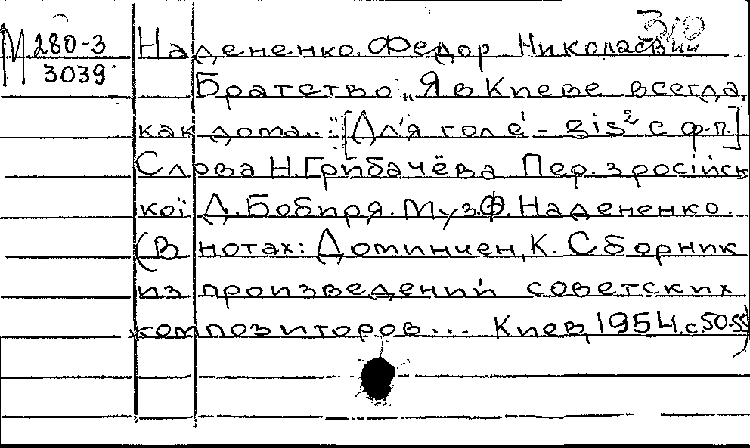 М 280-3 Надененко, Федор Николаевич
3039 Братство „Я в Киеве всегда,
как дома...": [Для гол. e¹ - gis² с ф-п.]
Слова Н. Грибачёва Пер. з російсь
кої Д. Бобиря. Муз. Ф. Надененко.
(В нотах: Доминчен, К. Сборник
из произведений советских
композиторов... Киев, 1954, с. 50-55)